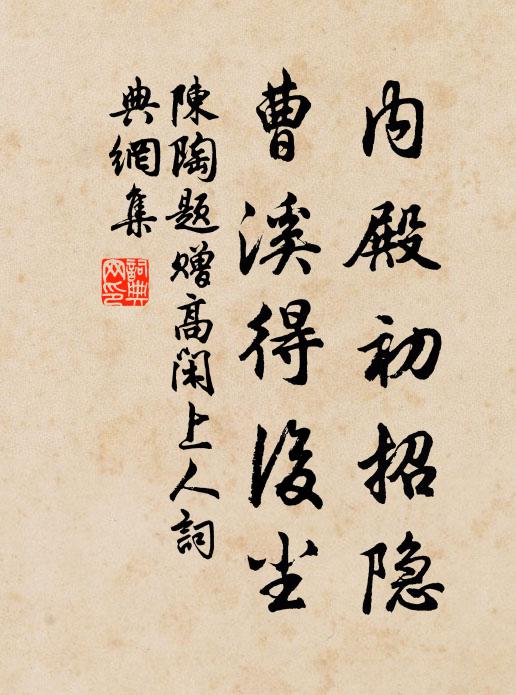 内殿初招隐
曹溪得後尘
陳陶题赠高閑上人詞
典網集
詞典网印